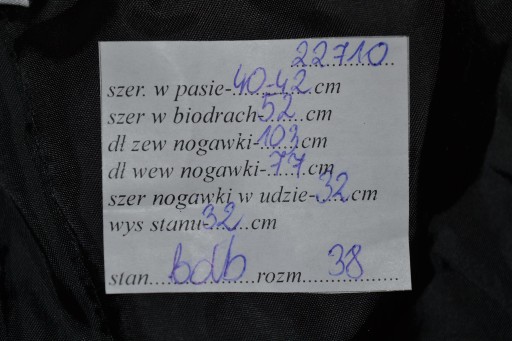 22710
szer. w pasie-40-42cm
szer w biodrach-52...cm
dł zew nogawki-103cm
dł wew nogawki-77cm
szer nogawki w udzie-32cm
wys stanu-32...cm
stan...bdb...rozm...38...